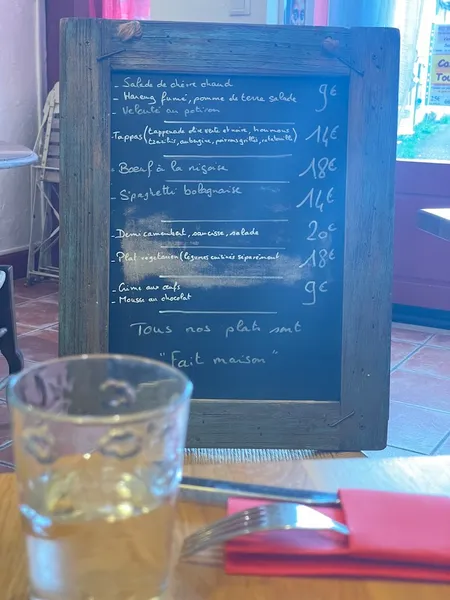 - Salade de chèvre chaud
- Hareng fumé, pomme de terre salade 9€
- Velouté au potiron
Tappas (tappenade olive verte et noire, houmous, 14€
tzatzikis, aubergine, poivrons grillés, ratatouille)
- Boeuf à la niçoise 18€
- Spaghetti bolognaise 14€
- Demi camembert, saucisse, salade 20€
- Plat végétarien (légumes cuisinés séparément 18€
- Crème aux oeufs 9€
- Mousse au chocolat
Tous nos plats sont
"Fait maison"